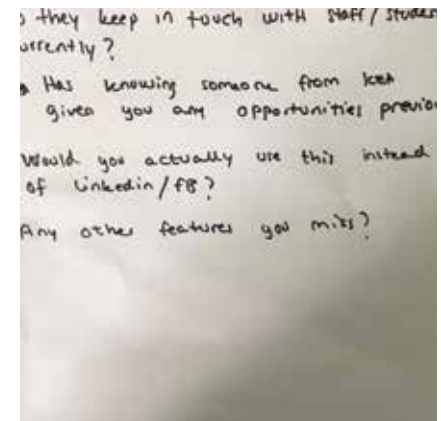 they keep in touch with staff/studen
urrently?
Has knowing someone from KEA
given you any opportunities previou
Would you actually use this instead
of Linkedin/FB?
Any other features you miss?